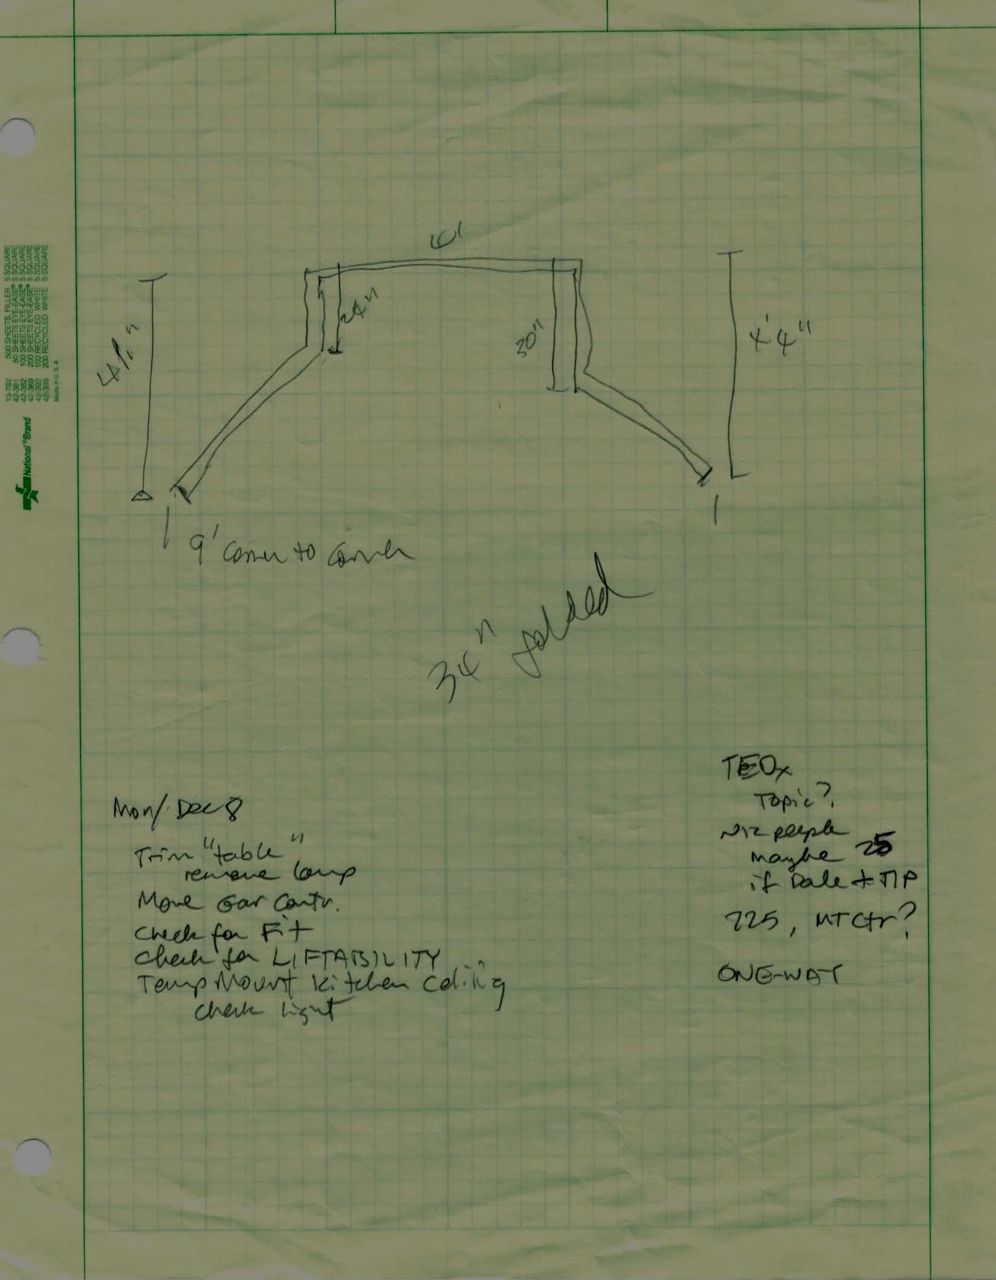 13-782 500 SHEETS, FILLER 5 SQUARE
42-381 50 SHEETS EYE-EASE® 5 SQUARE
42-382 100 SHEETS EYE-EASE® 5 SQUARE
42-389 200 SHEETS EYE-EASE® 5 SQUARE
42-392 100 RECYCLED WHITE 5 SQUARE
42-399 200 RECYCLED WHITE 5 SQUARE
Made in U.S.A.
National® Brand
24"
30"
4'4"
9' corner to corner
34" folded
Mon/Dec 8
Trim "table"
remove lamp
Move
Check for Fit
check for LIFTABILITY
Temp Mount kitchen ceiling
check light
TEDx
Topic?
people
maybe 25
if Dale +
225, MT Ctr?
ONE-WAY